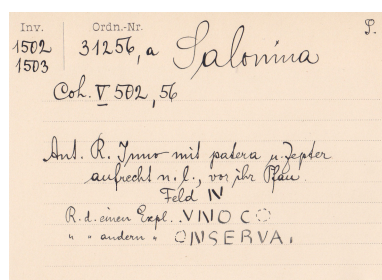 Inv. Ordn.-Nr. P.
1502 31256,a Salonina
1503
Coh. V 502, 56
Ant. R. Juno mit patera u. Zepter
aufrecht n. l., vor ihr Pfau.
Feld IV
R. d. einen Expl. VNO CO
" " andern " ONSERVA.